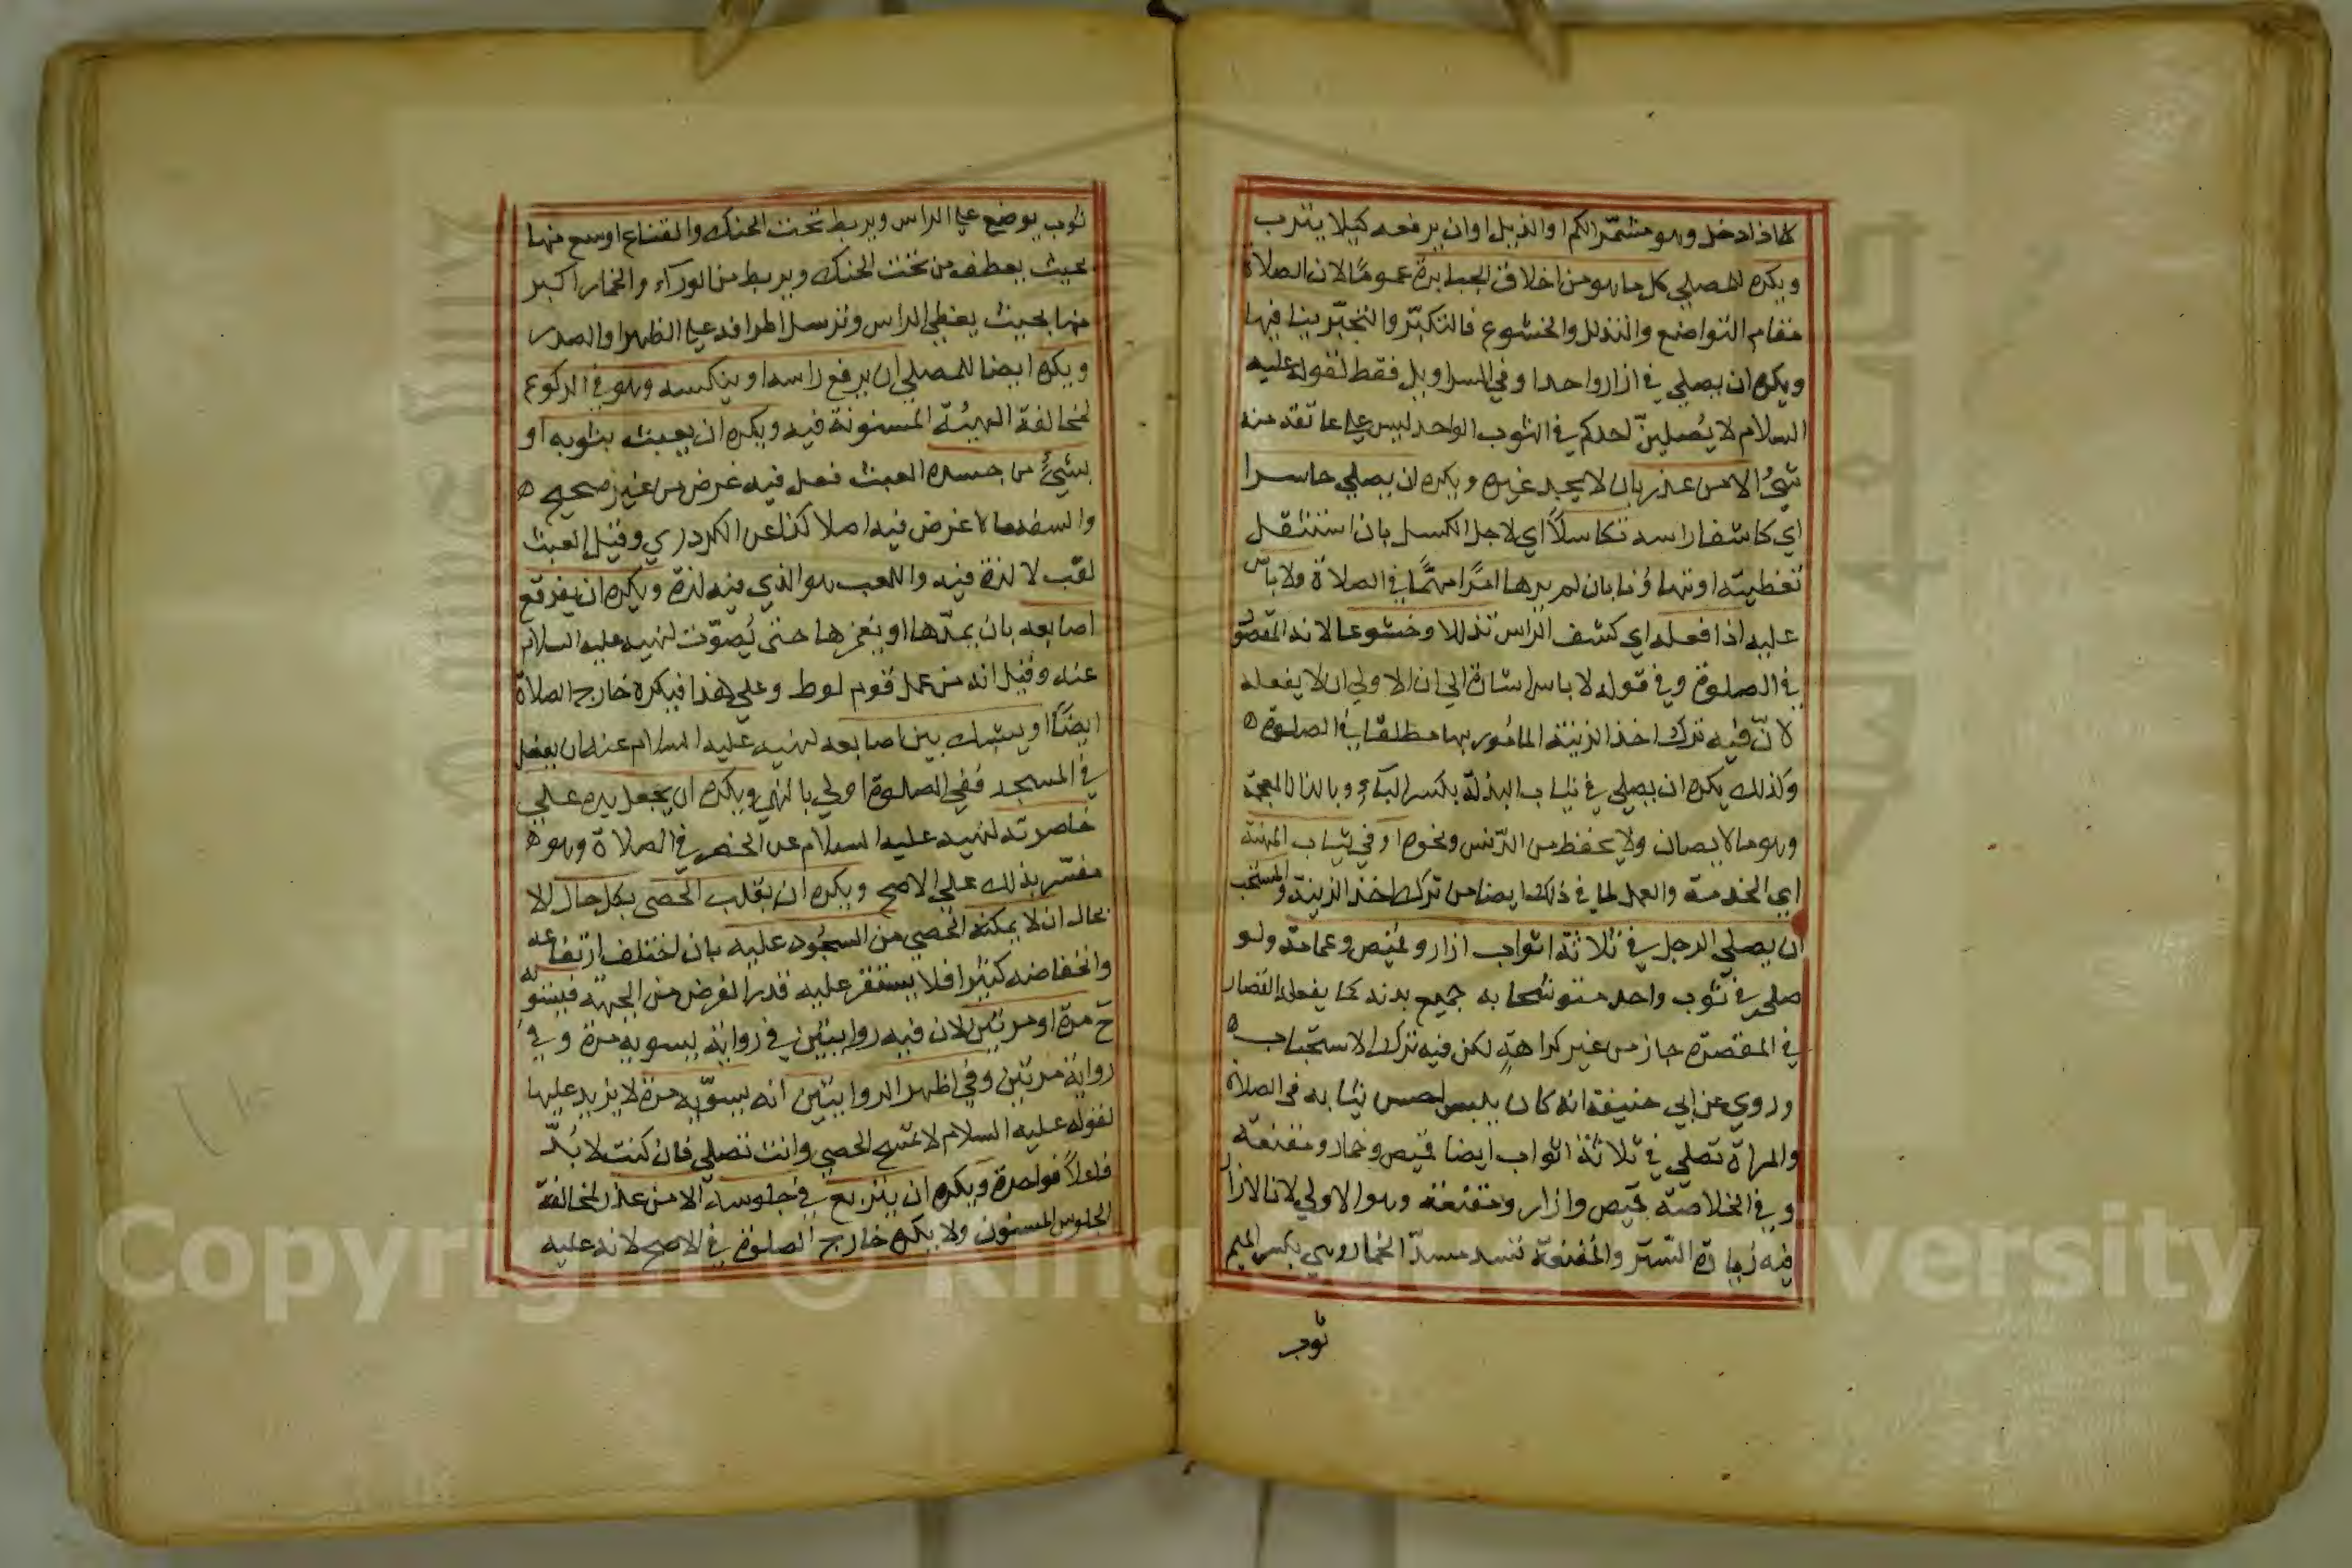 كما اذا دخل وهو مشمّر الكم او الذيل او ان يرفعه كيلا يتترب
ويكره للمصلي كل ما هو من اخلاق الجبابرة عموما لان الصلاة
مقام التواضع والتذلل والخشوع فالتكبّر والتجبّر ينافيها
ويكره ان يصلي في ازار واحد او في السراويل فقط لقوله عليه
السلام لا يُصلينّ احدكم في الثوب الواحد ليس على عاتقه منه
شيء الا من عذر بان لا يجد غيره ويكره ان يصلي حاسرا
اي كاشفا راسه تكاسلاً اي لاجل الكسل بان استثقل
تغطيته او تهاونا بان لم يرها امرًا مهمًّا في الصلاة ولا باس
عليه اذا فعله اي كشف الراس تذللا وخشوعا لانه المقصود
في الصلوة وفي قوله لا باس اشارة الى ان الاولى ان لا يفعله
لانّ فيه ترك اخذ الزينة المامور بها مطلقا في الصلوة ه
وكذلك يكره ان يصلي في ثياب البذلة بكسر الباء وبالذال المعجمة
وهو ما لا يصان ولا يحفظ من الدّنس ونحوه او في ثياب المهنة
اي الخدمة والعمل لما في ذلك ايضا من ترك اخذ الزينة والمستحب
ان يصلي الرجل في ثلاثة اثواب ازار وقميص وعمامة ولو
صلى في ثوب واحد متوشحا به جميع بدنه كما يفعله القصار
في المقصرة جاز من غير كراهةٍ لكن فيه ترك الاستحباب ه
وروي عن ابي حنيفة انه كان يلبس احسن ثيابه في الصلاة
والمراة تصلي في ثلاثة اثواب ايضا قميص وخمار ومقنعة
وفي الخلاصة قميص وازار ومقنعة وهو الاولى لان الازار
فيه زيادة الستر والمقنعة تسد مسدّ الخمار وهي بكسر الميم
ثوب
ثوب يوضع على الراس ويربط تحت الحنك والقناع اوسع منها
بحيث يعطف من تحت الحنك ويربط من الورآء والخمار اكبر
منها بحيث يغطى الراس وترسل اطرافه على الظهر او الصدر
ويكره ايضا للمصلي ان يرفع راسه او ينكسه وهو في الركوع
لمخالفة الهيئة المسنونة فيه ويكره ان يعبث بثوبه او
بشيء من جسده العبث فعل فيه غرض من غير صحيح ه
والسفه ما لا غرض فيه اصلا كذا عن الكردري وقيل العبث
لعب لا لذة فيه واللعب هو الذي فيه لذة ويكره ان يفرقع
اصابعه بان يمدّها او يغمزها حتى تُصوّت لنهيه عليه السلام
عنه وقيل انه من عمل قوم لوط وعلى هذا فيكره خارج الصلاة
ايضًا او يشبك بين اصابعه لنهيه عليه السلام عنه ان يفعل
في المسجد ففي الصلوة اولى بالنهي ويكره ان يجعل يده على
خاصرته لنهيه عليه السلام عن الخصر في الصلاة وهو ه
مفسّر بذلك على الاصح ويكره ان يقلب الحصى بكل حال الا
بحال ان لا يمكنه الحصى من السجود عليه بان اختلف ارتفاعه
وانخفاضه كثيرا فلا يستقر عليه قدر الفرض من الجبهة فيسويه
ح مرة او مرتين لان فيه روايتين في رواية يسويه مرة وفي
رواية مرتين وفي اظهر الروايتين انه يسوّيه مرة لا يزيد عليها
لقوله عليه السلام لا تمسح الحصى وانت تصلي فان كنت لا بُدّ
فاعلاً فواحدة ويكره ان يتربع في جلوسه الا من عذر لمخالفة
الجلوس المسنون ولا يكره خارج الصلوة في الاصح لانه عليه
Copyright © King Saud University